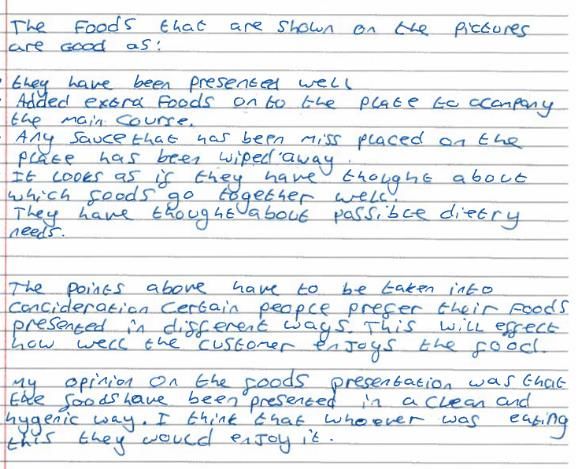 The Foods that are shown on the pictures
are Good as:
they have been presented well
Added extra Foods on to the plate to accmpany
the main Course.
Any Sauce that has been miss placed on the
plate has been wiped away.
It looks as if they have thought about
which foods go together well.
They have thought about possible dietry
needs.
The Points above have to be taken into
concideration Certain people prefer their Foods
presented in different ways. This will effect
how well the customer enjoys the food.
My opinion on the foods presentation was that
the foods have been presented in a clean and
hygenic way. I think that whoever was eating
this they would enjoy it.